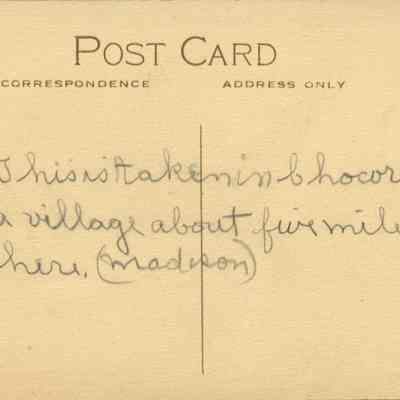 POST CARD
CORRESPONDENCE ADDRESS ONLY
This is taken in Chocor
a village about five mile
here. (Madison)